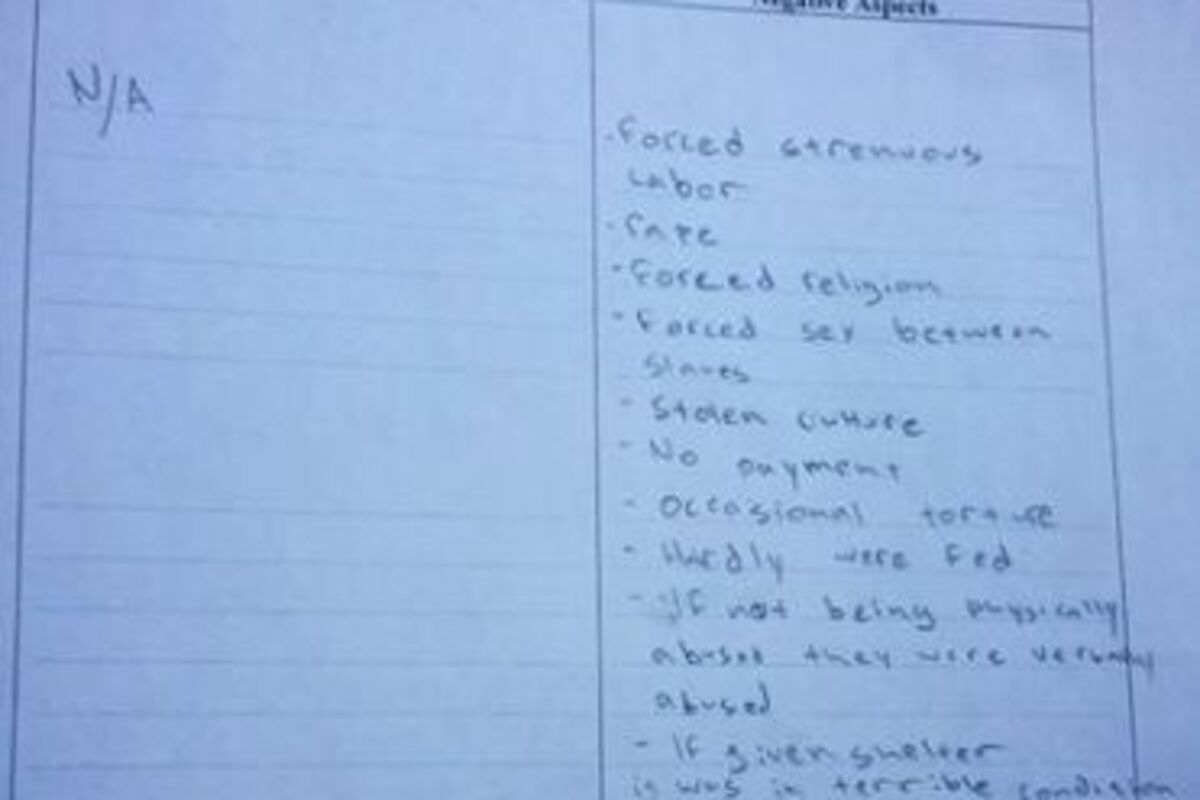 Negative Aspects
N/A
- Forced strenuous
Labor
- rape
- Forced religion
- Forced sex between
slaves
- Stolen culture
- No payment
- Occasional torture
- Hardly were fed
- If not being physically
abused they were verbally
abused
- If given shelter
is was in terrible condition